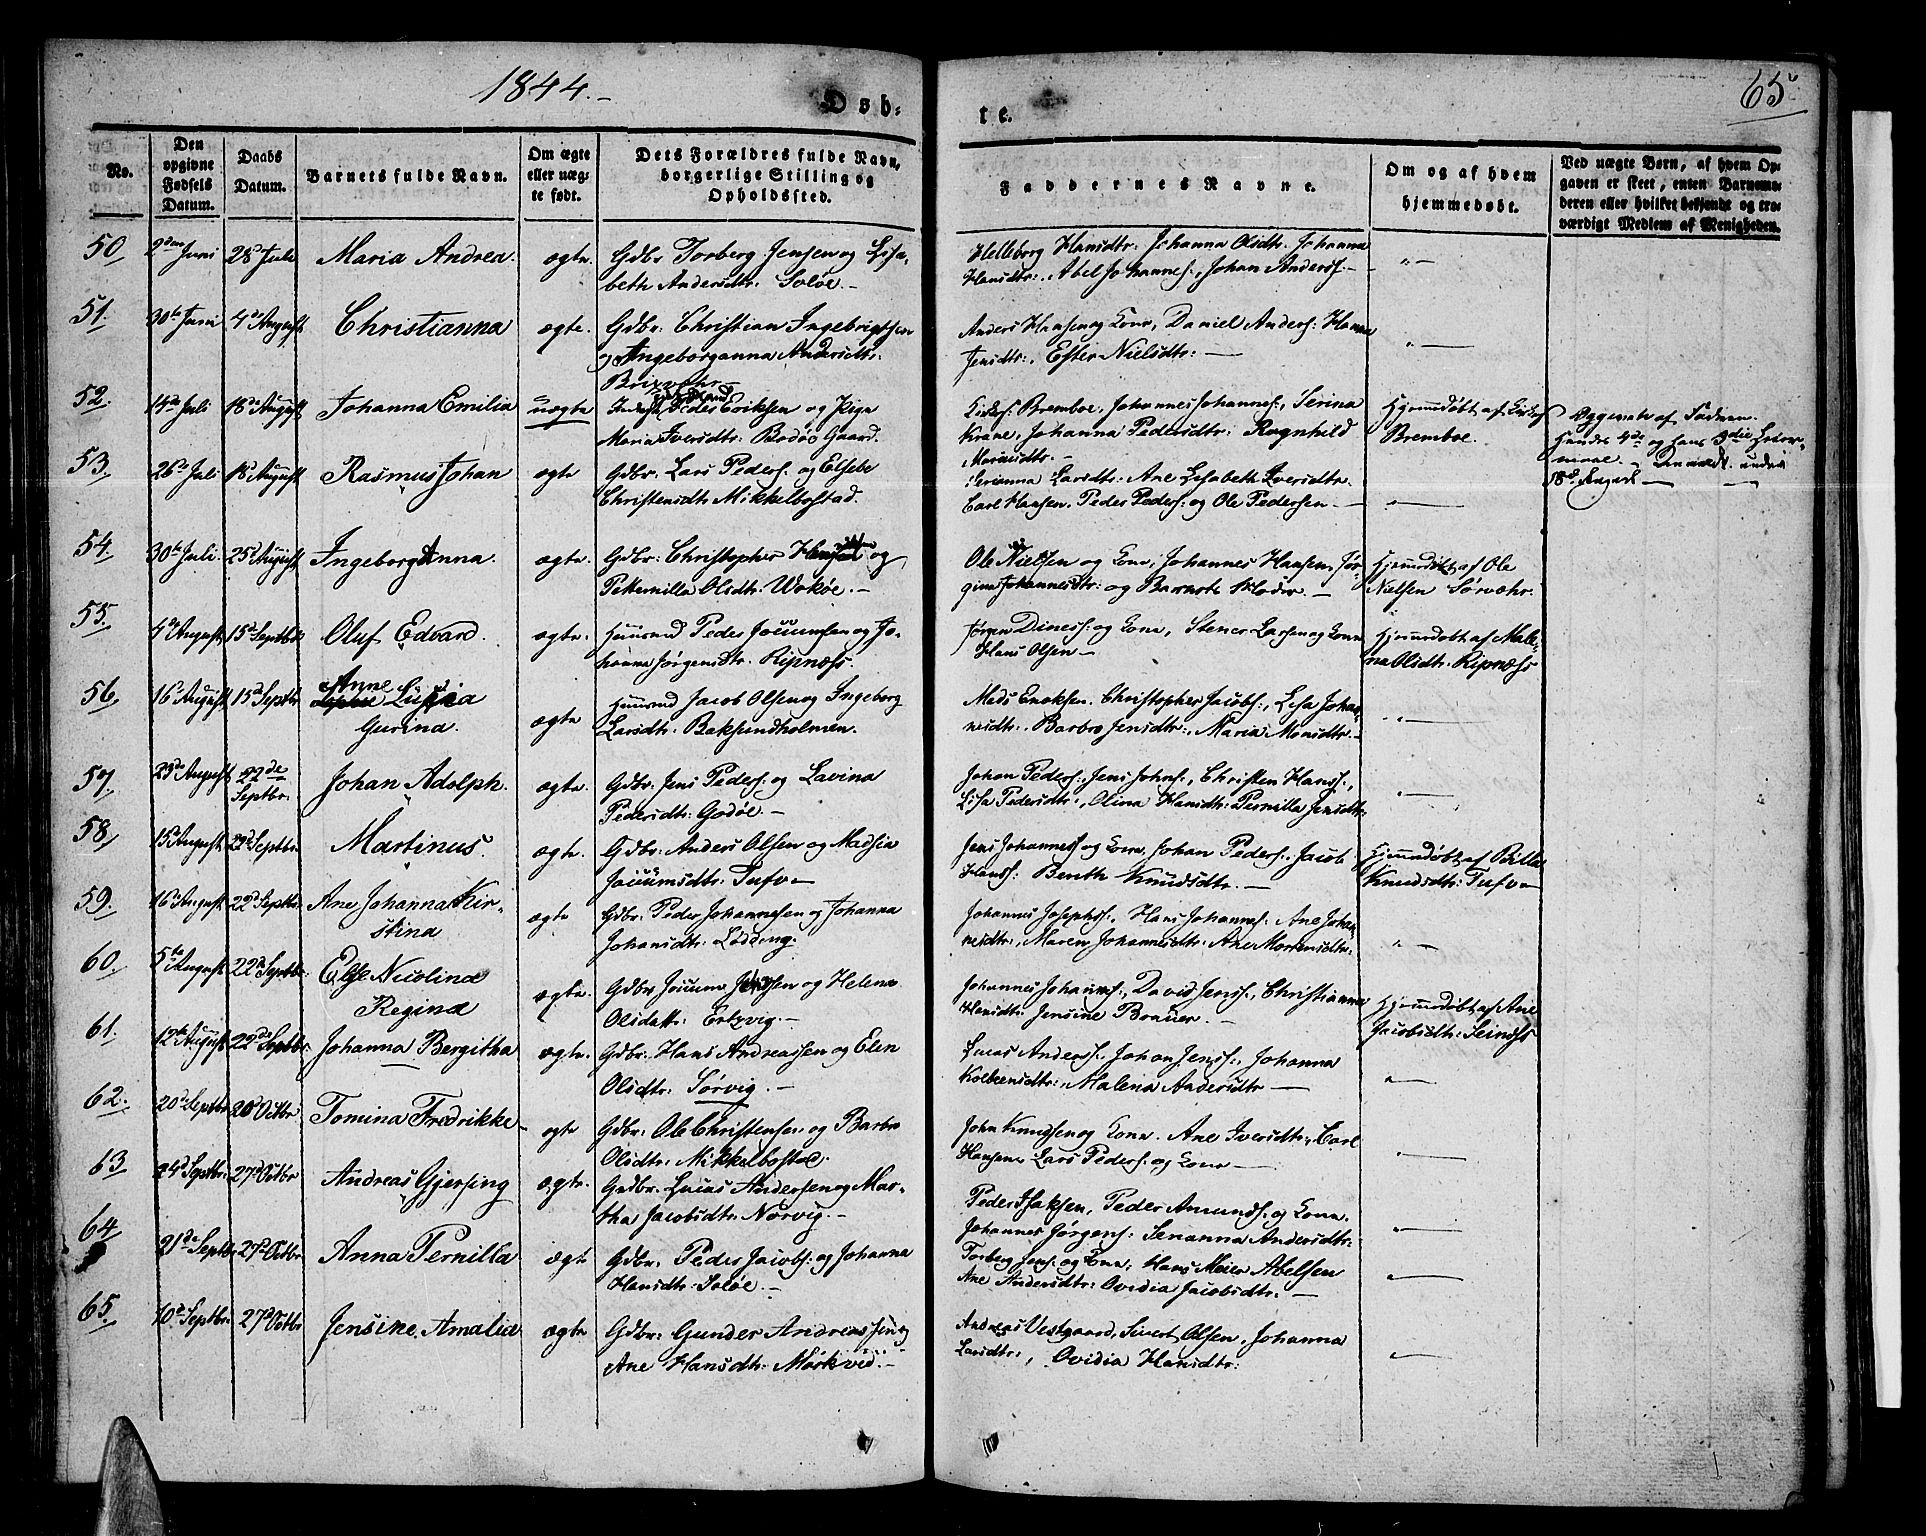 1844.-
Døb-
te.
65.
No.
Den opgivne Fødsels Datum.
Daabs Datum.
Barnets fulde Navn.
Om ægte eller uægte født.
Dets Forældres fulde Navn, borgerlige Stilling og Opholdssted.
Faddernes Navne.
Om og af hvem hjemmedøbt.
Ved uægte Børn, af hvem Opgaven er skeet, enten Barnemoderen eller hvilket bekjendt og troværdigt Medlem af Menigheden.
50 2den Juni 28d Juli Maria Andrea. ægte. Gdbr Torberg Jensen og Elisa-
beth Andersdtr: Soløe.-
Helleborg Hansdtr: Johanna Olsdtr. Johanna
Hansdtr:, Abel Johannes:, Johan Anderss:-
51. 30te Juni 4de August Christianna ægte. Gdbr: Christian Ingebrigtsen
og Ingeborganna Andersdtr:
Anders Hansen og Kone, Daniel Anders: Hanna
Jensdtr:, Ester Nielsdtr:-
52. 14de Juli 18de August Johanna Emilia uægte Peder Eriksen og Pige
Maria Iversdtr: Bodøe Gaard.
Bremboe, Johannes Johannes:, Serina
Krane, Johanna Pedersdtr: Ragnhild
Hjemmedøbt af
Bremboe.
Opgivet af Faderen.
Hendes 4de og hans 3die Leier-
maal.
53. 26de Juli 18de August Rasmus Johan ægte Gdbr: Lars Peders: og Elsebe
Christensdtr Mikkelbostad.
Larsdtr: Ane Elisabeth Iversdtr:
Carl Hansen. Peder Peders: og Ole Pedersen-
54. 30te Juli 25de August IngeborgAnna. ægte. Gdbr: Christopher og
Petternilla Olsdtr:
Ole Nielsen og Kone, Johannes Hansen, Jør-
gine Johannesdtr: og Barnets Moder.-
Hjemmedøbt af Ole
Nielsen Sørvær.
55. 4de August 15de Septbr Oluf Edvard. ægte. Huusmd Peder Jocumsen og Jo-
hanna Jørgensdtr. Ripnæss.
Jørgen Diness: og Kone, Stener Larsen og Kone
Hans Olsen-
Hjemmedøbt af Male-
na Olsdtr: Ripnæss
56. 16de August 15de Septbr Anne Lusia
Gurina.
ægte Huusmd Jacob Olsen og Ingeborg
Larsdtr: Baksundholmen.
Mads Enoksen. Christopher Jacobs:, Lisa Johan-
nesdtr:. Barbro Jensdtr:, Maria Monsdtr-
57. 23de August 22de
Septbr.
Johan Adolph. ægte. Gdbr: Jens Peders: og Lavina
Pedersdtr: Godøe.-
Johan Peders:, Jens Johns:, Christen Hanss:,
Lisa Pedersdtr:, Olina Hansdtr: Pernilla Jensdtr:
58, 15de August 22d Septbr. Martinus. ægte. Gdbr: Anders Olsen og Madsia
Jocumsdtr: Tufv-
Jens Johanness og Kone, Johan Peders:, Jacob
Hanss: Berith Knudsdtr.-
Hjemmedøbt af
Knudsdtr: Tufv-
59. 16de August 22d Septbr. Ane Johanna Kir-
stina
ægte Gdbr: Peder Johannesen og Johanna
Johansdtr: Løding.
Johannes Josephss:, Hans Johannes:. Ane Johan-
nesdtr:, Maren Johannesdtr:
60. 5te August 22de Septbr: Else Nicolina
Regina
ægte. Gdbr. Jocum Jensen og Helena
Olsdatt:
Johannes Johanness:, David Jenss:, Christianna
Hansdtr: Jensine Brauer.-
Hjemmedøbt af Ane
Jacobsdtr: Seinæss
61. 12te August 22de Septbr Johanna Bergitha ægte. Gdbr: Hans Andreassen og Elen
Olsdtr: Sørvig.-
Lucas Anderss:. Johan Jenss:, Johanna
Malena Andersdtr-
62. 20de Septbr 20de Octbr. Tomina Fredrikke- ægte Gdbr: Ole Christensen og Barbro
Olsdtr: Mikkelbostad.
John Knudsen og Kone. Ane Iversdtr:, Carl
Hansen, Lars Peders: og Kone-
63 24d Septbr: 27d Octbr Andreas Gjersing ægte. Gdbr: Lucas Andersen og Mar-
tha Jacobsdtr: Norvig.-
Peder Isaksen, Peder Amunds: og Kone.
Johannes Jørgens: Serianna Andersdtr:
64 21de Septbr 27de Octbr Anna Pernilla ægte Gdbr: Peder Jacobs: og Johanna
Hansdtr: Soløe.-
Torberg Jens: og Kone, Hans Meier Abelsen
Ane Andersdtr: Ovidia Jacobsdtr:-
65. 10de Septbr. 27d Octbr Jensine Amalia ægte Gdbr: Gunder Andreas Jens og
Ane Hansdtr: Mørkved.-
Andreas Vestgaard, Sivert Olsen, Johanna
Larsdtr:, Ovidia Hansdtr: